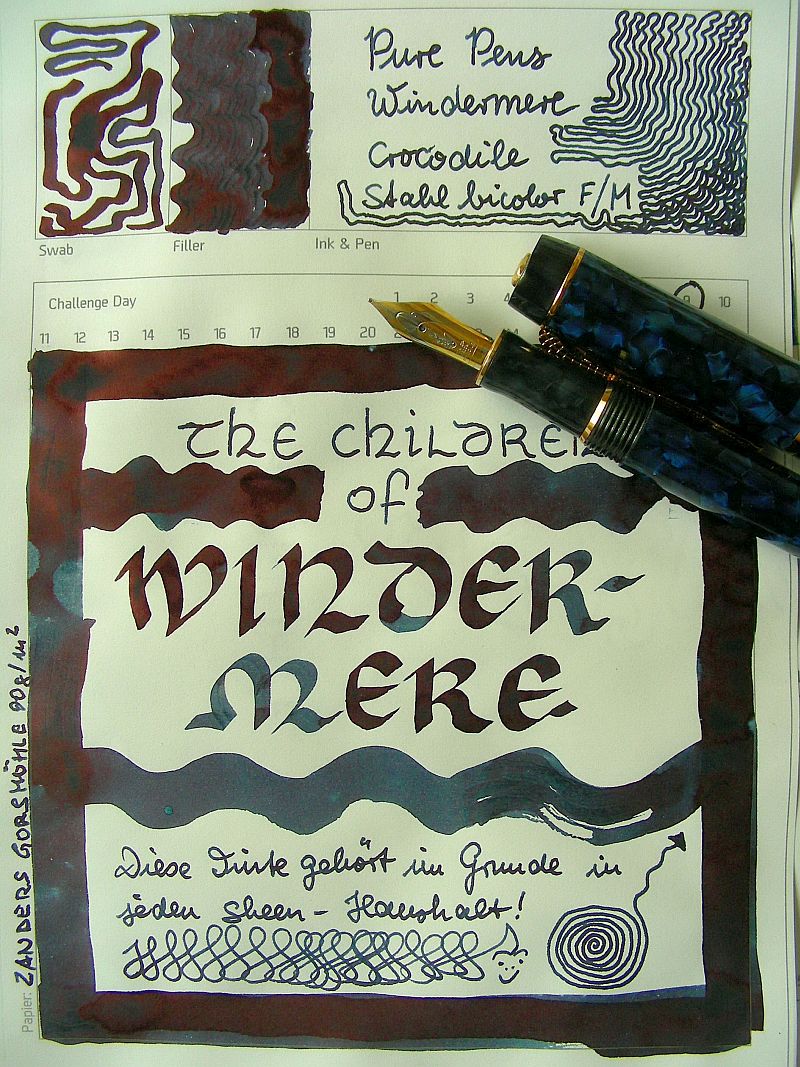 Pure Pens
Windermere
Crocodile
Stahl bicolor F/M
Swab
Filler
Ink & Pen
Challenge Day
1 2 3 4 9 10
11 12 13 14 15 16 17 18 19 20
The Children
of
WINDER-
MERE
Diese Tinte gehört im Grunde in
jeden Sheen-Haushalt!
Papier: ZANDERS GORSMÜHLE 90g/m²